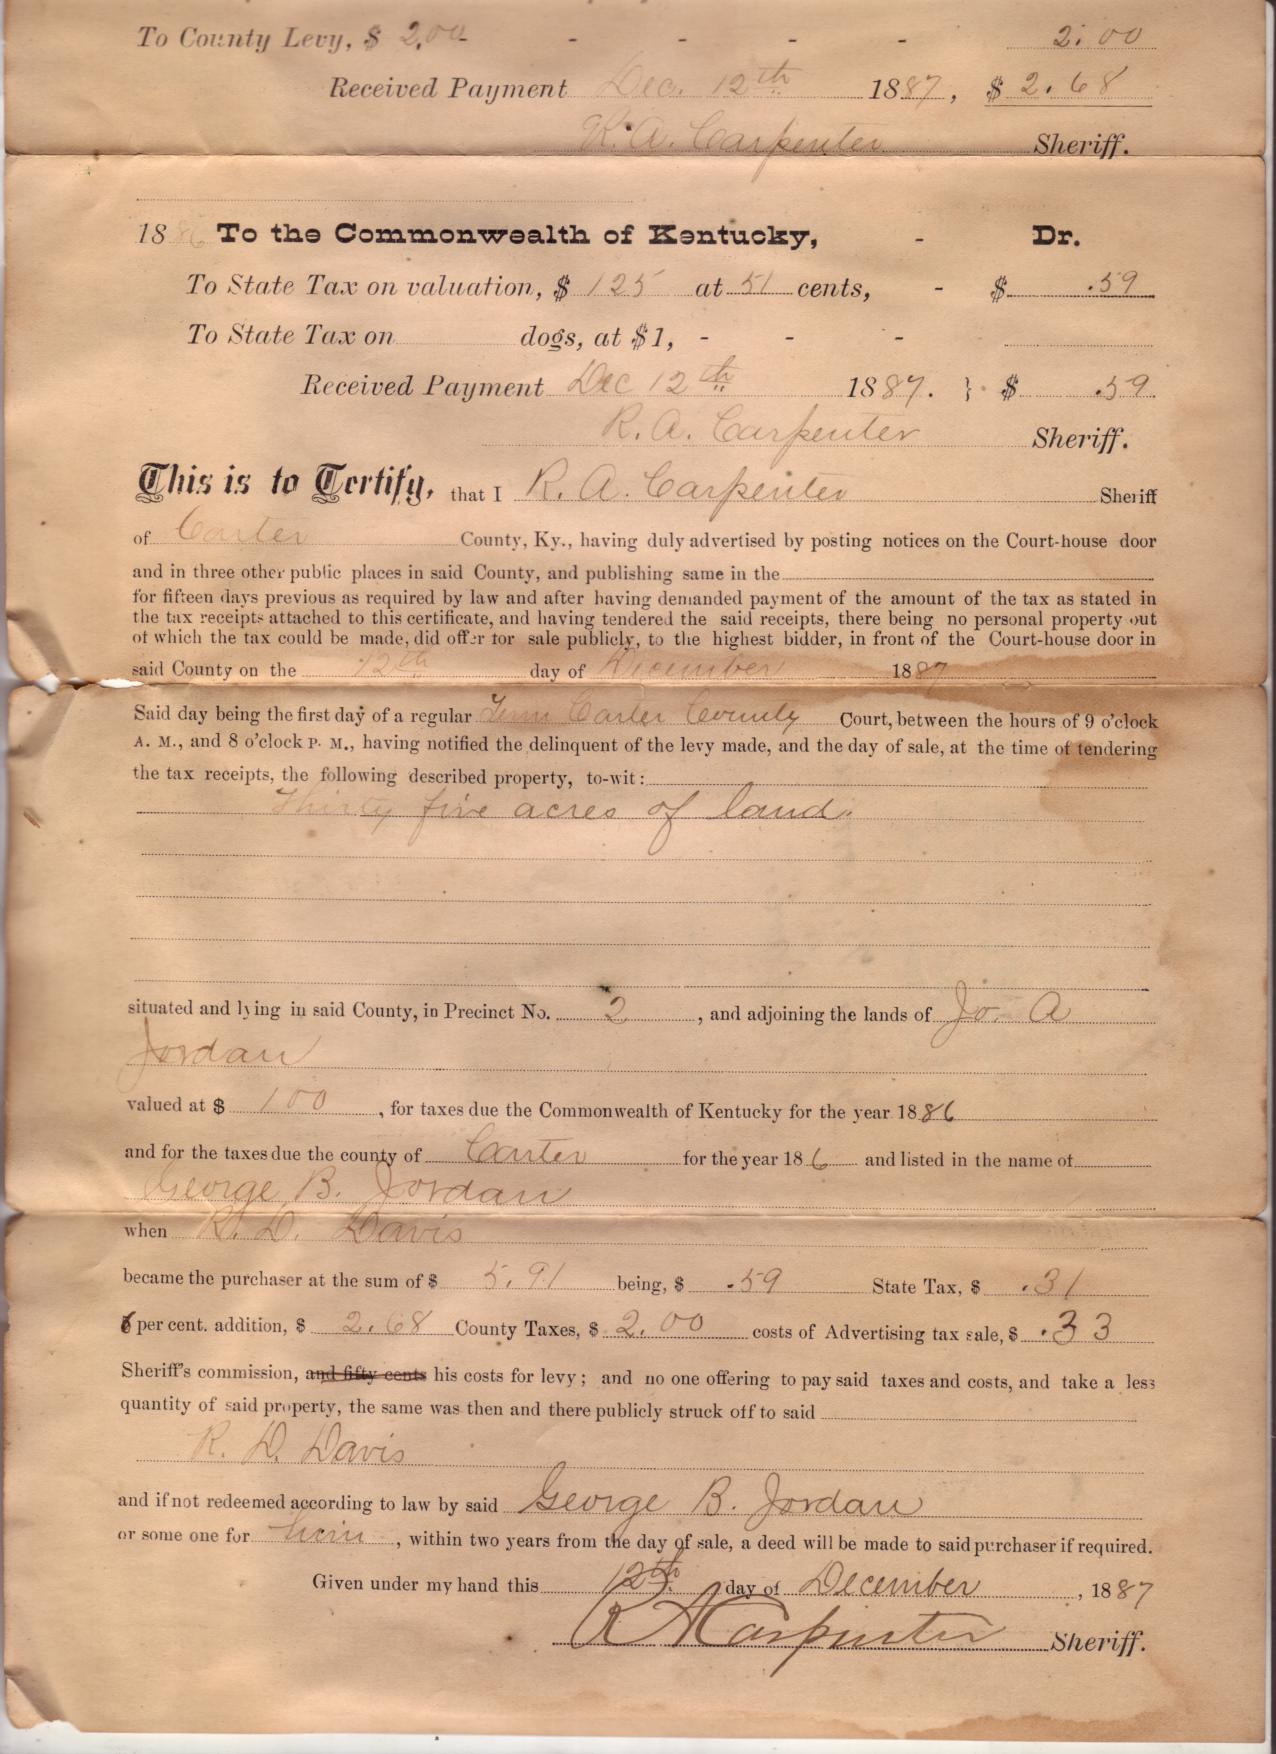 To County Levy, $ 2,00 - - - - 2.00
Received Payment Dec. 12th 1887, $ 2.68
R. A. Carpenter Sheriff.
1886 To the Commonwealth of Kentucky, - Dr.
To State Tax on valuation, $ 125 at 51 cents, - $ .59
To State Tax on dogs, at $1, - - -
Received Payment Dec 12th 1887. } $ .59
R. A. Carpenter Sheriff.
This is to Certify, that I R. A. Carpenter Sheriff
of Carter County, Ky., having duly advertised by posting notices on the Court-house door
and in three other public places in said County, and publishing same in the
for fifteen days previous as required by law and after having demanded payment of the amount of the tax as stated in
the tax receipts attached to this certificate, and having tendered the said receipts, there being no personal property out
of which the tax could be made, did offer for sale publicly, to the highest bidder, in front of the Court-house door in
said County on the 12th day of December 1887
Said day being the first day of a regular Term Carter County Court, between the hours of 9 o'clock
A. M., and 8 o'clock P. M., having notified the delinquent of the levy made, and the day of sale, at the time of tendering
the tax receipts, the following described property, to-wit:
Thirty five acres of land.
situated and lying in said County, in Precinct No. 2, and adjoining the lands of Jo. A
Jordan
valued at $ 100, for taxes due the Commonwealth of Kentucky for the year 1886
and for the taxes due the county of Carter for the year 186 and listed in the name of
George B. Jordan
when R. D. Davis
became the purchaser at the sum of $ 5.91 being, $ .59 State Tax, $ .31
6 per cent. addition, $ 2.68 County Taxes, $ 2.00 costs of Advertising tax sale, $ .33
Sheriff's commission, and fifty cents his costs for levy; and no one offering to pay said taxes and costs, and take a less
quantity of said property, the same was then and there publicly struck off to said
R. D. Davis
and if not redeemed according to law by said George B. Jordan
or some one for him, within two years from the day of sale, a deed will be made to said purchaser if required.
Given under my hand this 12th. day of December, 1887
R A Carpenter Sheriff.